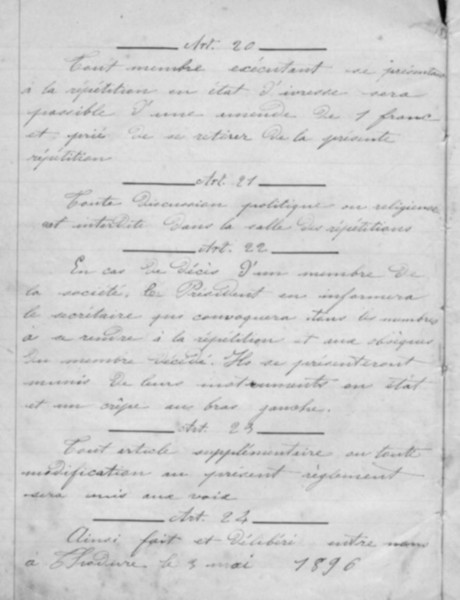 Art. 20
Tout membre exécutant se présentant
à la répétition en état d'ivresse sera
passible d'une amende de 1 franc
et prié de se retirer de la présente
répétition
Art. 21
Toute discussion politique ou religieuse
est interdite dans la salle des répétitions
Art. 22
En cas de décès d'un membre de
la société, le Président en informera
le secrétaire qui convoquera tous les membres
à se rendre à la répétition et aux obsèques
du membre décédé. Ils se présenteront
munis de leurs instruments en état
et un crêpe au bras gauche.
Art. 23
Tout article supplémentaire ou toute
modification au présent règlement
sera mis aux voix
Art. 24
Ainsi fait et délibéré entre nous
à le 3 mai 1896